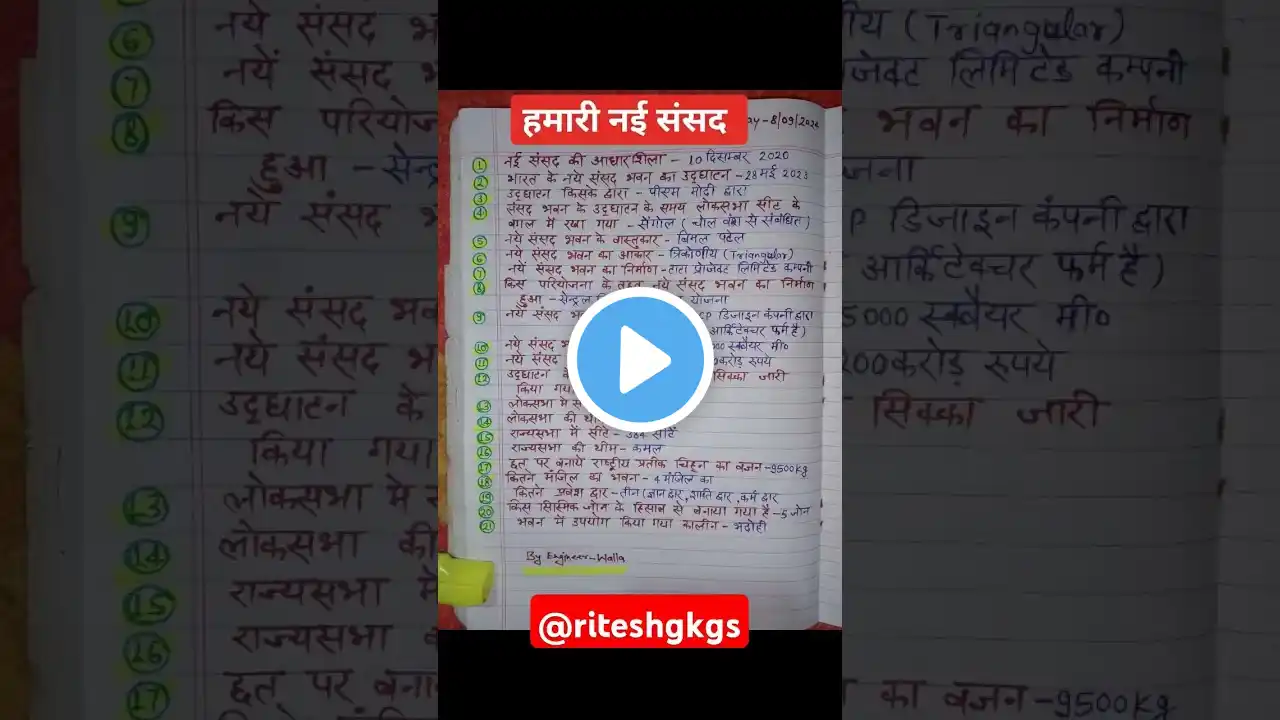 हमारी नई संसद
ay-8/09/2024
① नई संसद की आधारशिला - 10 दिसम्बर 2020
② भारत के नये संसद भवन का उद्घाटन - 28 मई 2023
③ उद्घाटन किसके द्वारा - पीएम मोदी द्वारा
④ संसद भवन के उद्घाटन के समय लोकसभा सीट के
बगल में रखा गया - सेंगोल (चोल वंश से संबंधित)
⑤ नये संसद भवन के वास्तुकार - बिमल पटेल
⑥ नये संसद भवन का आकार - त्रिकोणीय (Triangular)
⑦ नयें संसद भवन का निर्माण - टाटा प्रोजेक्ट लिमिटेड कम्पनी
⑧ किस परियोजना के तहत नये संसद भवन का निर्माण
हुआ - सेन्ट्रल योजना
⑨ नये संसद भव P डिजाइन कंपनी द्वारा
आर्किटेक्चर फर्म है)
⑩ नये संसद भव 5000 स्क्वैयर मी०
⑪ नये संसद 200करोड़ रूपये
⑫ उद्घाटन के सिक्का जारी
किया गया
⑬ लोकसभा मे स
⑭ लोकसभा की थी
⑮ राज्यसभा में सीटे - 384 सीटें
⑯ राज्यसभा की थीम - कमल
⑰ छत पर बनाये राष्ट्रीय प्रतीक चिह्न का वजन - 9500kg
⑱ कितने मंजिल का भवन - 4 मंजिल का
⑲ कितने प्रवेश द्वार - तीन (ज्ञान द्वार, शक्ति द्वार, कर्म द्वार
⑳ किस सिस्मिक जोन के हिसाब से बनाया गया है - 5 जोन
㉑ भवन में उपयोग किया गया कालीन - भदोही
By Engineer-Walla
@riteshgkgs